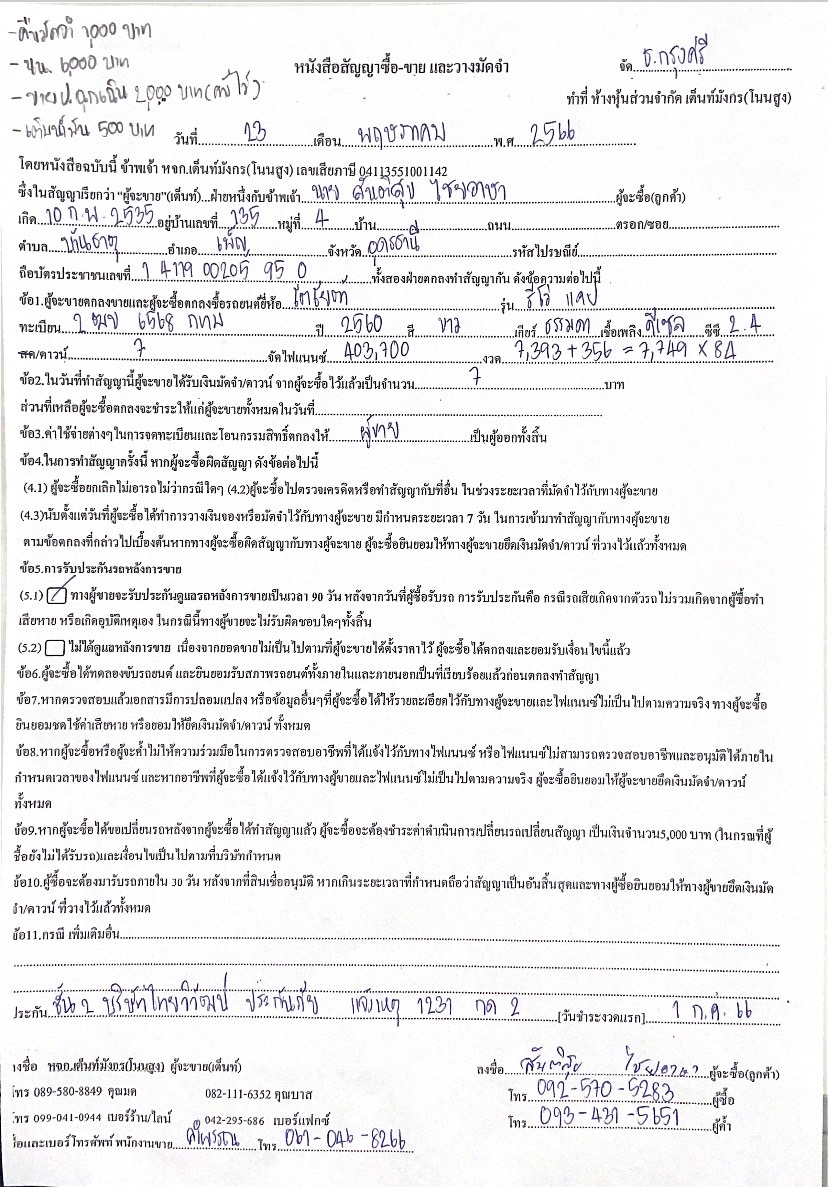 -คืนมัดจำ 1,000 บาท
- นน. 6,000 บาท
- ขาย ป.ฉุกเฉิน 2,000 บาท (ค่าไร่)
- เติมน้ำมัน 500 บาท
หนังสือสัญญาซื้อ-ขาย และวางมัดจำ
จัด ธ.กรุงศรี
ทำที่ ห้างหุ้นส่วนจำกัด เต็นท์มังกร(โนนสูง)
วันที่ 23 เดือน พฤษภาคม พ.ศ 2566
โดยหนังสือฉบับนี้ ข้าพเจ้า หจก.เต็นท์มังกร(โนนสูง) เลขเสียภาษี 04113551001142
ซึ่งในสัญญาเรียกว่า "ผู้จะขาย"(เต็นท์)...ฝ่ายหนึ่งกับข้าพเจ้า นาย สันติสุข ไชยอาษา ผู้จะซื้อ(ลูกค้า)
เกิด 10 ก.พ. 2535 อยู่บ้านเลขที่ 135 หมู่ที่ 4 บ้าน ถนน ตรอก/ซอย
ตำบล บ้านธาตุ อำเภอ เพ็ญ จังหวัด อุดรธานี รหัสไปรษณีย์
ถือบัตรประชาชนเลขที่ 1 4119 00205 95 0 ทั้งสองฝ่ายตกลงทำสัญญากัน ดังข้อความต่อไปนี้
ข้อ1.ผู้จะขายตกลงขายและผู้จะซื้อตกลงซื้อรถยนต์ยี่ห้อ โตโยต้า รุ่น รีโว่ แคป
ทะเบียน 2 ฒข 6568 กทม ปี 2560 สี ขาว เกียร์ ธรรมดา เชื้อเพลิง ดีเซล ซีซี 2.4
สด/ดาวน์ 7 จัดไฟแนนซ์ 403,700 งวด 7,393 + 356 = 7,749 × 84
ข้อ2.ในวันที่ทำสัญญานี้ผู้จะขายได้รับเงินมัดจำ/ดาวน์ จากผู้จะซื้อไว้แล้วเป็นจำนวน 7 บาท
ส่วนที่เหลือผู้จะซื้อตกลงจะชำระให้แก่ผู้จะขายทั้งหมดในวันที่
ข้อ3.ค่าใช้จ่ายต่างๆในการจดทะเบียนและโอนกรรมสิทธิ์ตกลงให้ ผู้ขาย เป็นผู้ออกทั้งสิ้น
ข้อ4.ในการทำสัญญาครั้งนี้ หากผู้จะซื้อผิดสัญญา ดังข้อต่อไปนี้
(4.1) ผู้จะซื้อยกเลิกไม่เอารถไม่ว่ากรณีใดๆ (4.2)ผู้จะซื้อไปตรวจเครดิตหรือทำสัญญากับที่อื่น ในช่วงระยะเวลาที่มัดจำไว้กับทางผู้จะขาย
(4.3)นับตั้งแต่วันที่ผู้จะซื้อได้ทำการวางเงินจองหรือมัดจำไว้กับทางผู้จะขาย มีกำหนดระยะเวลา 7 วัน ในการเข้ามาทำสัญญากับทางผู้จะขาย
ตามข้อตกลงที่กล่าวไปเบื้องต้นหากทางผู้จะซื้อผิดสัญญากับทางผู้จะขาย ผู้จะซื้อยินยอมให้ทางผู้จะขายยึดเงินมัดจำ/ดาวน์ ที่วางไว้แล้วทั้งหมด
ข้อ5.การรับประกันรถหลังการขาย
(5.1) ทางผู้ขายจะรับประกันดูแลรถหลังการขายเป็นเวลา 90 วัน หลังจากวันที่ผู้ซื้อรับรถ การรับประกันคือ กรณีรถเสียเกิดจากตัวรถไม่รวมเกิดจากผู้ซื้อทำ
เสียหาย หรือเกิดอุบัติเหตุเอง ในกรณีนี้ทางผู้ขายจะไม่รับผิดชอบใดๆทั้งสิ้น
(5.2) ไม่ได้ดูแลหลังการขาย เนื่องจากยอดขายไม่เป็นไปตามที่ผู้จะขายได้ตั้งราคาไว้ ผู้จะซื้อได้ตกลงและยอมรับเงื่อนไขนี้แล้ว
ข้อ6.ผู้จะซื้อได้ทดลองขับรถยนต์ และยินยอมรับสภาพรถยนต์ทั้งภายในและภายนอกเป็นที่เรียบร้อยแล้วก่อนตกลงทำสัญญา
ข้อ7.หากตรวจสอบแล้วเอกสารมีการปลอมแปลง หรือข้อมูลอื่นๆที่ผู้จะซื้อได้ให้รายละเอียดไว้กับทางผู้จะขายและไฟแนนซ์ไม่เป็นไปตามความจริง ทางผู้จะซื้อ
ยินยอมชดใช้ค่าเสียหาย หรือยอมให้ยึดเงินมัดจำ/ดาวน์ ทั้งหมด
ข้อ8.หากผู้จะซื้อหรือผู้จะค้ำไม่ให้ความร่วมมือในการตรวจสอบอาชีพที่ได้แจ้งไว้กับทางไฟแนนซ์ หรือไฟแนนซ์ไม่สามารถตรวจสอบอาชีพและอนุมัติได้ภายใน
กำหนดเวลาของไฟแนนซ์ และหากอาชีพที่ผู้จะซื้อได้แจ้งไว้กับทางผู้ขายและไฟแนนซ์ไม่เป็นไปตามความจริง ผู้จะซื้อยินยอมให้ผู้จะขายยึดเงินมัดจำ/ดาวน์
ทั้งหมด
ข้อ9.หากผู้จะซื้อได้ขอเปลี่ยนรถหลังจากผู้จะซื้อได้ทำสัญญาแล้ว ผู้จะซื้อจะต้องชำระค่าดำเนินการเปลี่ยนรถเปลี่ยนสัญญา เป็นเงินจำนวน5,000 บาท (ในกรณที่ผู้
ซื้อยังไม่ได้รับรถ)และเงื่อนไขเป็นไปตามที่บริษัทกำหนด
ข้อ10.ผู้ซื้อจะต้องมารับรถภายใน 30 วัน หลังจากที่สินเชื่ออนุมัติ หากเกินระยะเวลาที่กำหนดถือว่าสัญญาเป็นอันสิ้นสุดและทางผู้ซื้อยินยอมให้ทางผู้ขายยึดเงินมัด
จำ/ดาวน์ ที่วางไว้แล้วทั้งหมด
ข้อ11.กรณี เพิ่มเติมอื่น
ประกัน ชั้น 2 บริษัทไทยวิวัฒน์ ประกันภัย แจ้งเหตุ 1231 กด 2 [วันชำระงวดแรก] 1 ก.ค. 66
งชื่อ หจก.เต็นท์มังกร(โนนสูง) ผู้จะขาย(เต็นท์)
ลงชื่อ สันติสุข ไชยอาษา ผู้จะซื้อ(ลูกค้า)
โทร 089-580-8849 คุณมด 082-111-6352 คุณบาส
โทร 092-570-5283 ผู้ซื้อ
โทร 099-041-0944 เบอร์ร้าน/ไลน์ 042-295-686 เบอร์แฟกซ์
โทร 093-431-5651 ผู้ค้ำ
อและเบอร์โทรศัพท์ พนักงานขาย โทร 061-046-8266